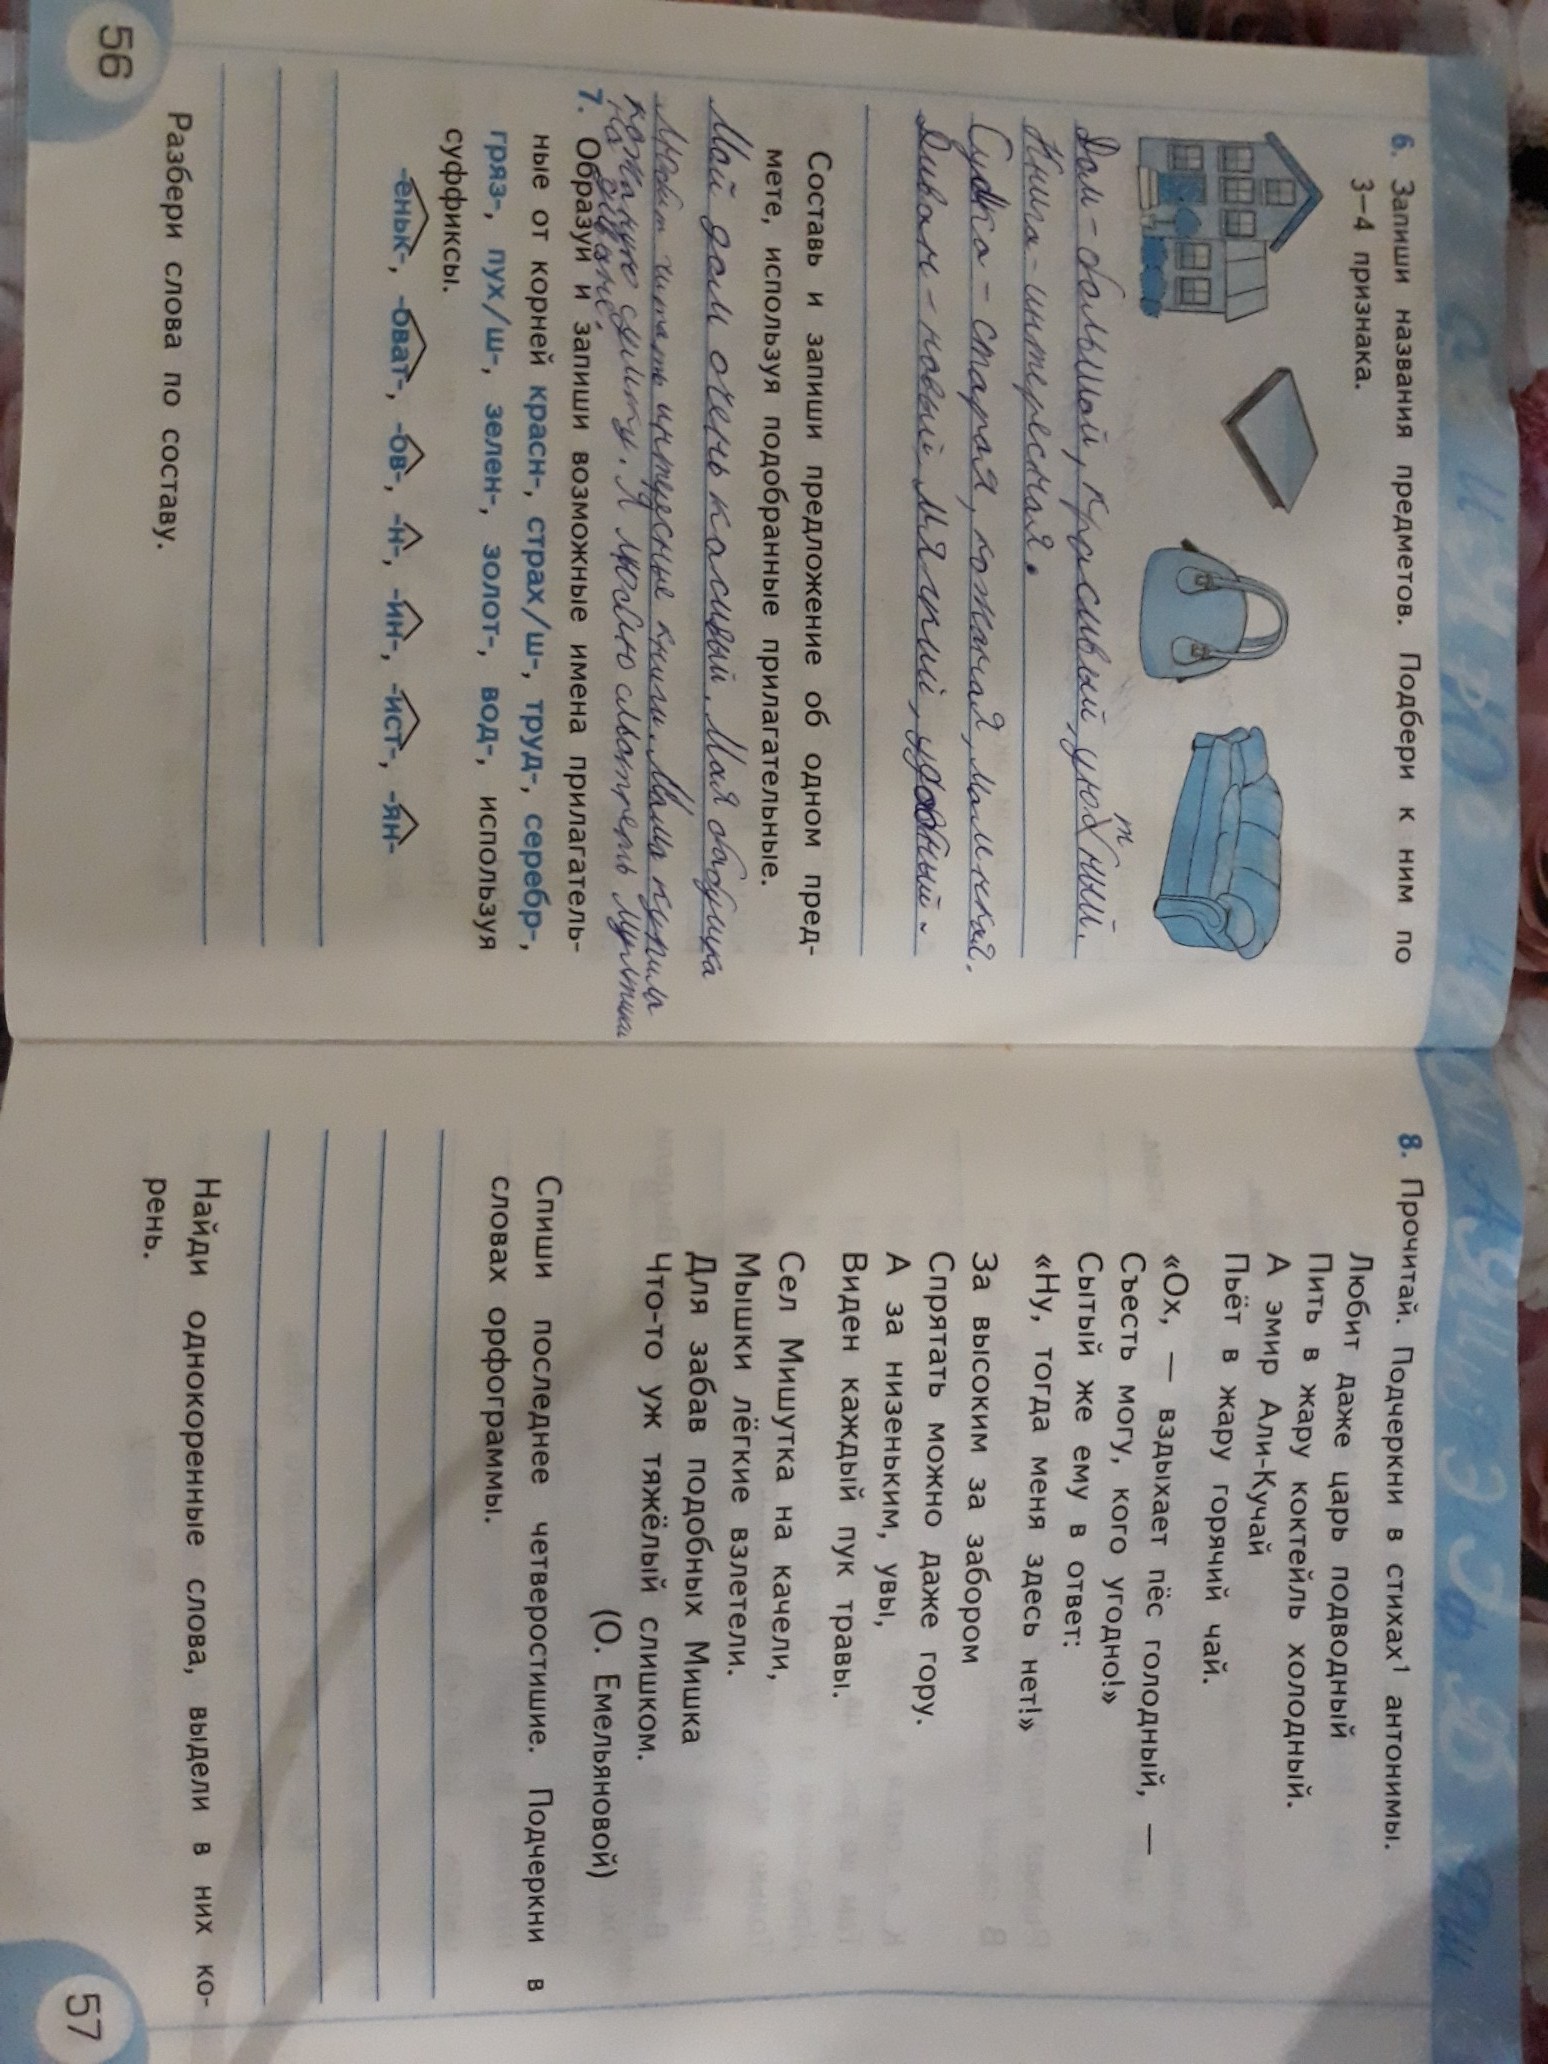 6. Запиши названия предметов. Подбери к ним по
3–4 признака.
Дом - большой, красивый, уюдный.
т
Книга - интересная.
Сумка - старая, кожаная, маленкая.
Диван - новый, мягкий, удобный.
Составь и запиши предложение об одном пред-
мете, используя подобранные прилагательные.
Мой дом очень касивый. Моя бабушка
любит читать интересные книги. Мама купила
кожаную сумку. Я люблю смотреть мультики
на диване.
7. Образуй и запиши возможные имена прилагатель-
ные от корней красн-, страх/ш-, труд-, серебр-,
гряз-, пух/ш-, зелен-, золот-, вод-, используя
суффиксы.
-еньк-, -оват-, -ов-, -н-, -ин-, -ист-, -ян-
Разбери слова по составу.
56
8. Прочитай. Подчеркни в стихах¹ антонимы.
Любит даже царь подводный
Пить в жару коктейль холодный.
А эмир Али-Кучай
Пьёт в жару горячий чай.
«Ох, — вздыхает пёс голодный, —
Съесть могу, кого угодно!»
Сытый же ему в ответ:
«Ну, тогда меня здесь нет!»
За высоким за забором
Спрятать можно даже гору.
А за низеньким, увы,
Виден каждый пук травы.
Сел Мишутка на качели,
Мышки лёгкие взлетели.
Для забав подобных Мишка
Что-то уж тяжёлый слишком.
(О. Емельяновой)
Спиши последнее четверостишие. Подчеркни в
словах орфограммы.
Найди однокоренные слова, выдели в них ко-
рень.
57